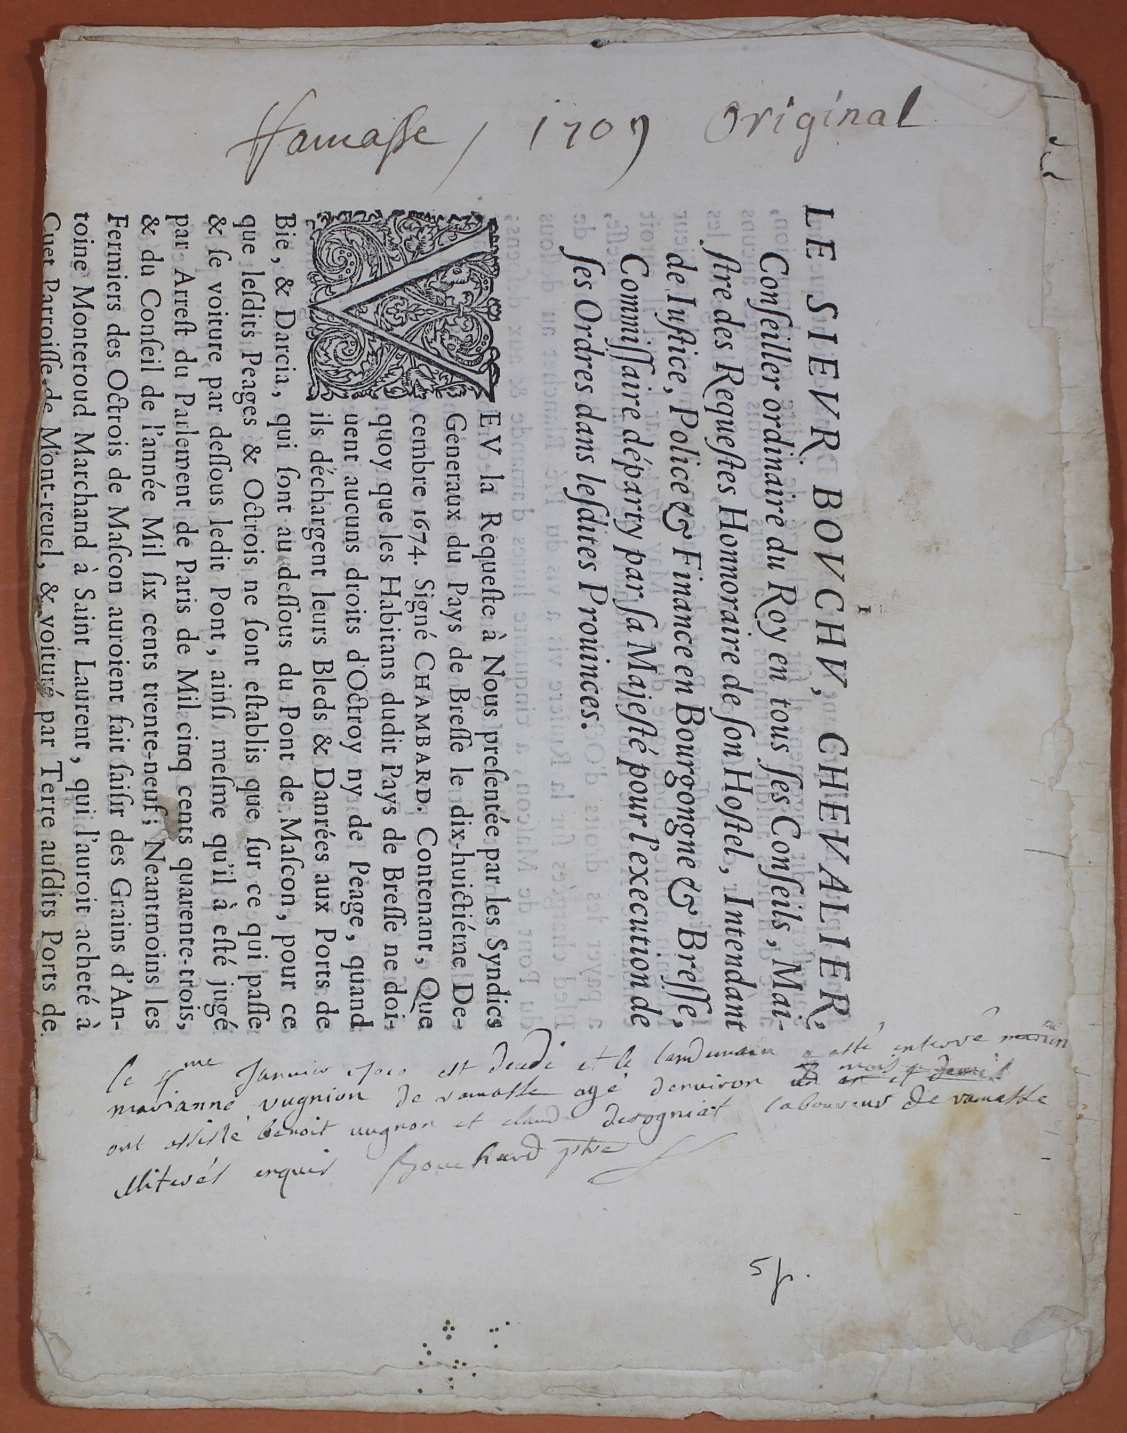 Ramasse / 1709 Original
LE SIEVR BOVCHV, CHEVALIER,
Conſeiller ordinaire du Roy en tous ſes Conſeils, Mai-
ſtre des Requeſtes Honnoraire de ſon Hoſtel, Intendant
de Iuſtice, Police & Finance en Bourgongne & Breſſe,
Commiſſaire départy par ſa Majeſté pour l'execution de
ſes Ordres dans leſdites Prouinces.
VEV la Requeſte à Nous preſentée par les Syndics
Generaux du Pays de Breſſe le dix-huictiéme De-
cembre 1674. Signé CHAMBARD. Contenant, Que
quoy que les Habitans dudit Pays de Breſſe ne doi-
uent aucuns droits d'Octroy ny de Peage, quand
ils déchargent leurs Bleds & Danrées aux Ports de
Bié, & Darcia, qui ſont au deſſous du Pont de Maſcon, pour ce
que leſdits Peages & Octrois ne ſont eſtablis que ſur ce qui paſſe
& ſe voiture par deſſous ledit Pont, ainſi meſme qu'il à eſté jugé
par Arreſt du Parlement de Paris de Mil cinq cents quarente-trois,
& du Conſeil de l'année Mil ſix cents trente-neuf; Neantmoins les
Fermiers des Octrois de Maſcon auroient fait ſaiſir des Grains d'An-
toine Monteroud Marchand à Saint Laurent, qui l'auroit acheté à
Cuet Parroiſſe de Mont-reuel, & voituré par Terre auſdits Ports de
le me Janvier est decedé et le landemain a esté enterré
marianne vugnion de ramasse agé denviron
ont assisté benoit vugnon et claude derogniat laboureur de ramasse
illiterés enquis Bouchard ptre